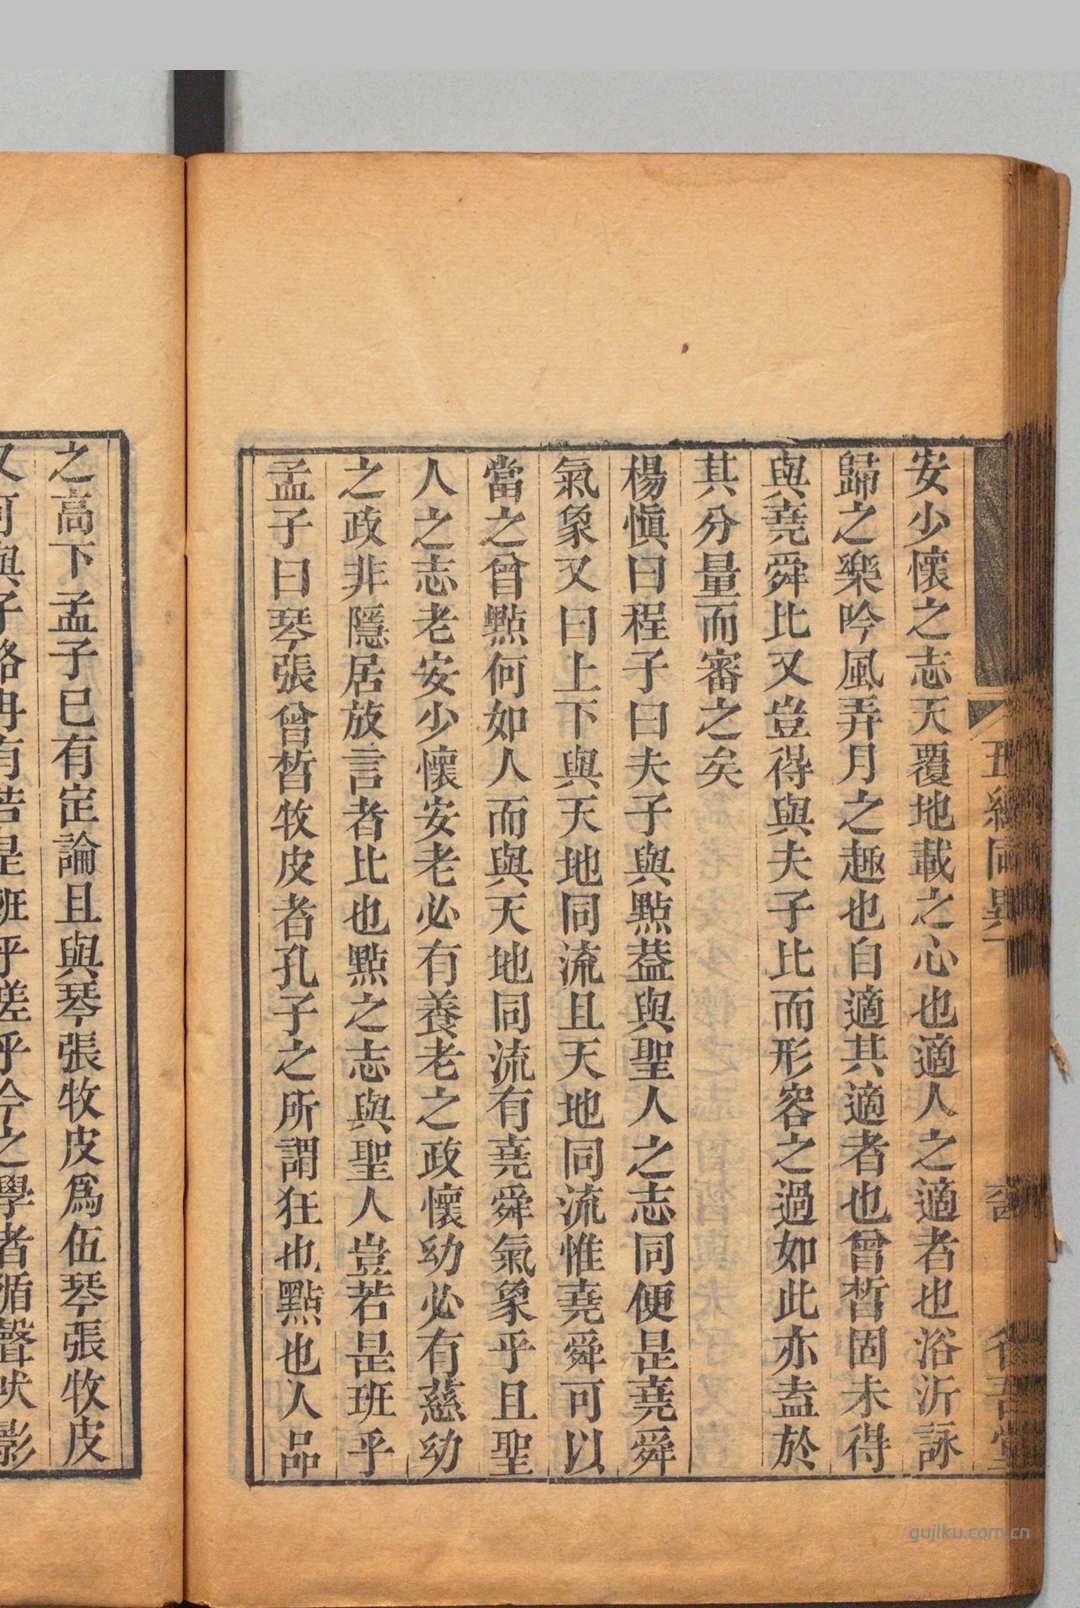 安少懷之志天覆地載之心也適人之適者也浴沂詠
歸之樂吟風弄月之趣也自適其適者也曾晳固未得
與堯舜比又豈得與夫子比而形容之過如此亦盍於
其分量而審之矣
楊愼曰程子曰夫子與點葢與聖人之志同便是堯舜
氣象又曰上下與天地同流且天地同流惟堯舜可以
當之曾點何如人而與天地同流有堯舜氣象乎且聖
人之志老安少懷安老必有養老之政懷幼必有慈幼
之政非隱居放言者比也點之志與聖人豈若是班乎
孟子曰琴張曾晳牧皮者孔子之所謂狂也點也人品
之高下孟子已有定論且與琴張牧皮爲伍琴張牧皮
又何與子路冉有若是班乎嗟乎今之學者循聲吠影
gujiku.com.cn